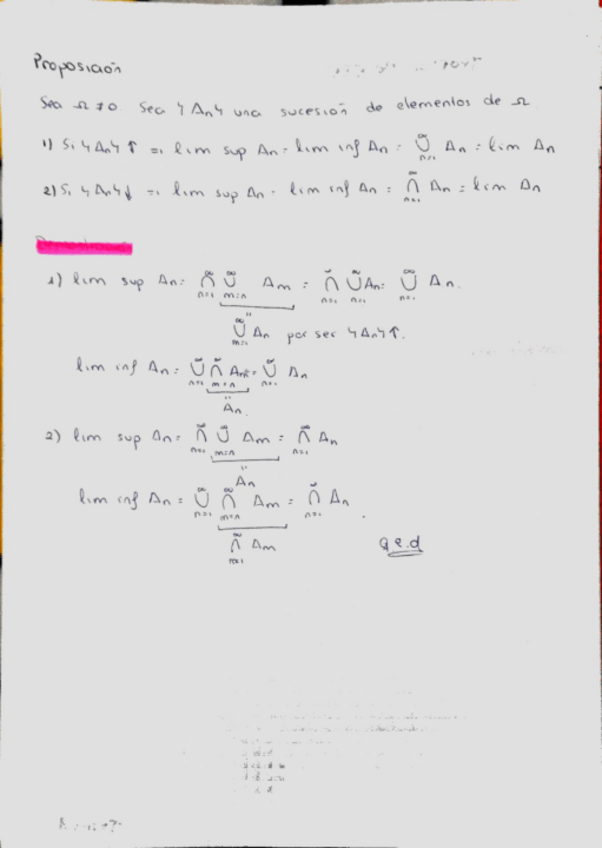 Proposición
Sea Ω ≠ ∅ Sea {An} una sucesión de elementos de Ω
1) Si {An}↑ => lim sup An = lim inf An = ∪_{n=1}^∞ An = lim An
2) Si {An}↓ => lim sup An = lim inf An = ∩_{n=1}^∞ An = lim An
1) lim sup An = ∩_{n=1}^∞ ∪_{m=n}^∞ Am = ∩_{n=1}^∞ ∪_{n=1}^∞ An = ∪_{n=1}^∞ An.
∪_{m=1}^∞ An por ser {An}↑.
lim inf An = ∪_{n=1}^∞ ∩_{m=n}^∞ Am = ∪_{n=1}^∞ An
An.
2) lim sup An = ∩_{n=1}^∞ ∪_{m=n}^∞ Am = ∩_{n=1}^∞ An
An
lim inf An = ∪_{n=1}^∞ ∩_{m=n}^∞ Am = ∩_{n=1}^∞ An.
∩_{m=1}^∞ Am
q.e.d